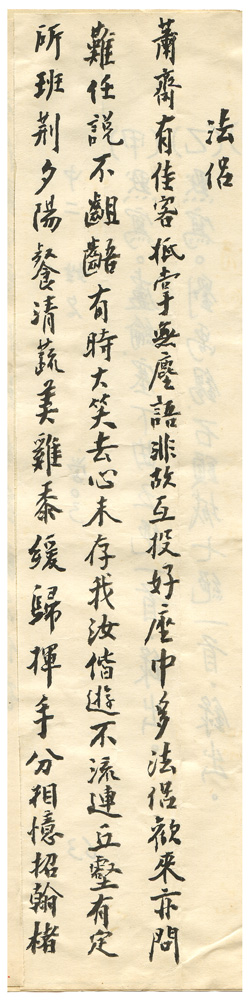 法侣
蕭齋有佳客抵掌無塵語非故互投好座中多法侣歡來亦問
難任說不齟齬有時大笑去心未存我汝偕遊不流連丘壑有定
所班荆夕陽餐清蔬美雞黍緩歸揮手分相憶招翰楮